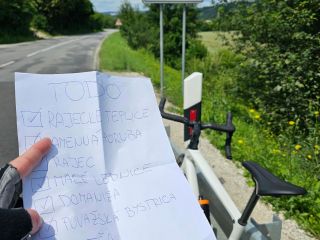 TODO
RAJECKÉ TEPLICE
KAMENNÁ PORUBA
RAJEC
MALÉ LEDNICE
DOMANIŽA
POVAŽSKÁ BYSTRICA